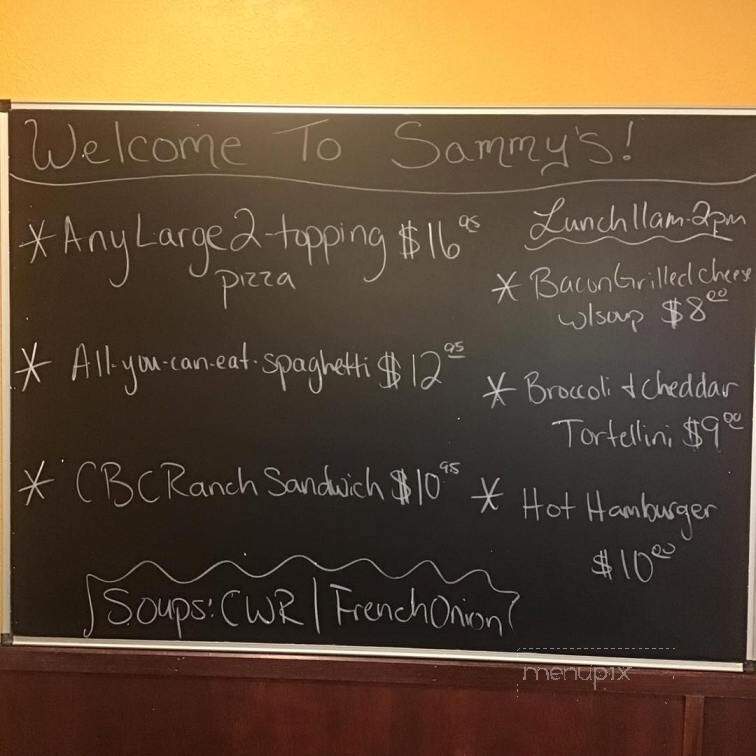 Welcome To Sammy's!
* Any Large 2-topping $16.95
pizza
* All-you-can-eat-spaghetti $12.95
* CBC Ranch Sandwich $10.95
Soups: CWR | French Onion
Lunch 11am-2pm
* Bacon Grilled cheese
w/soup $8.00
* Broccoli & Cheddar
Tortellini $9.00
* Hot Hamburger
$10.00
menupix